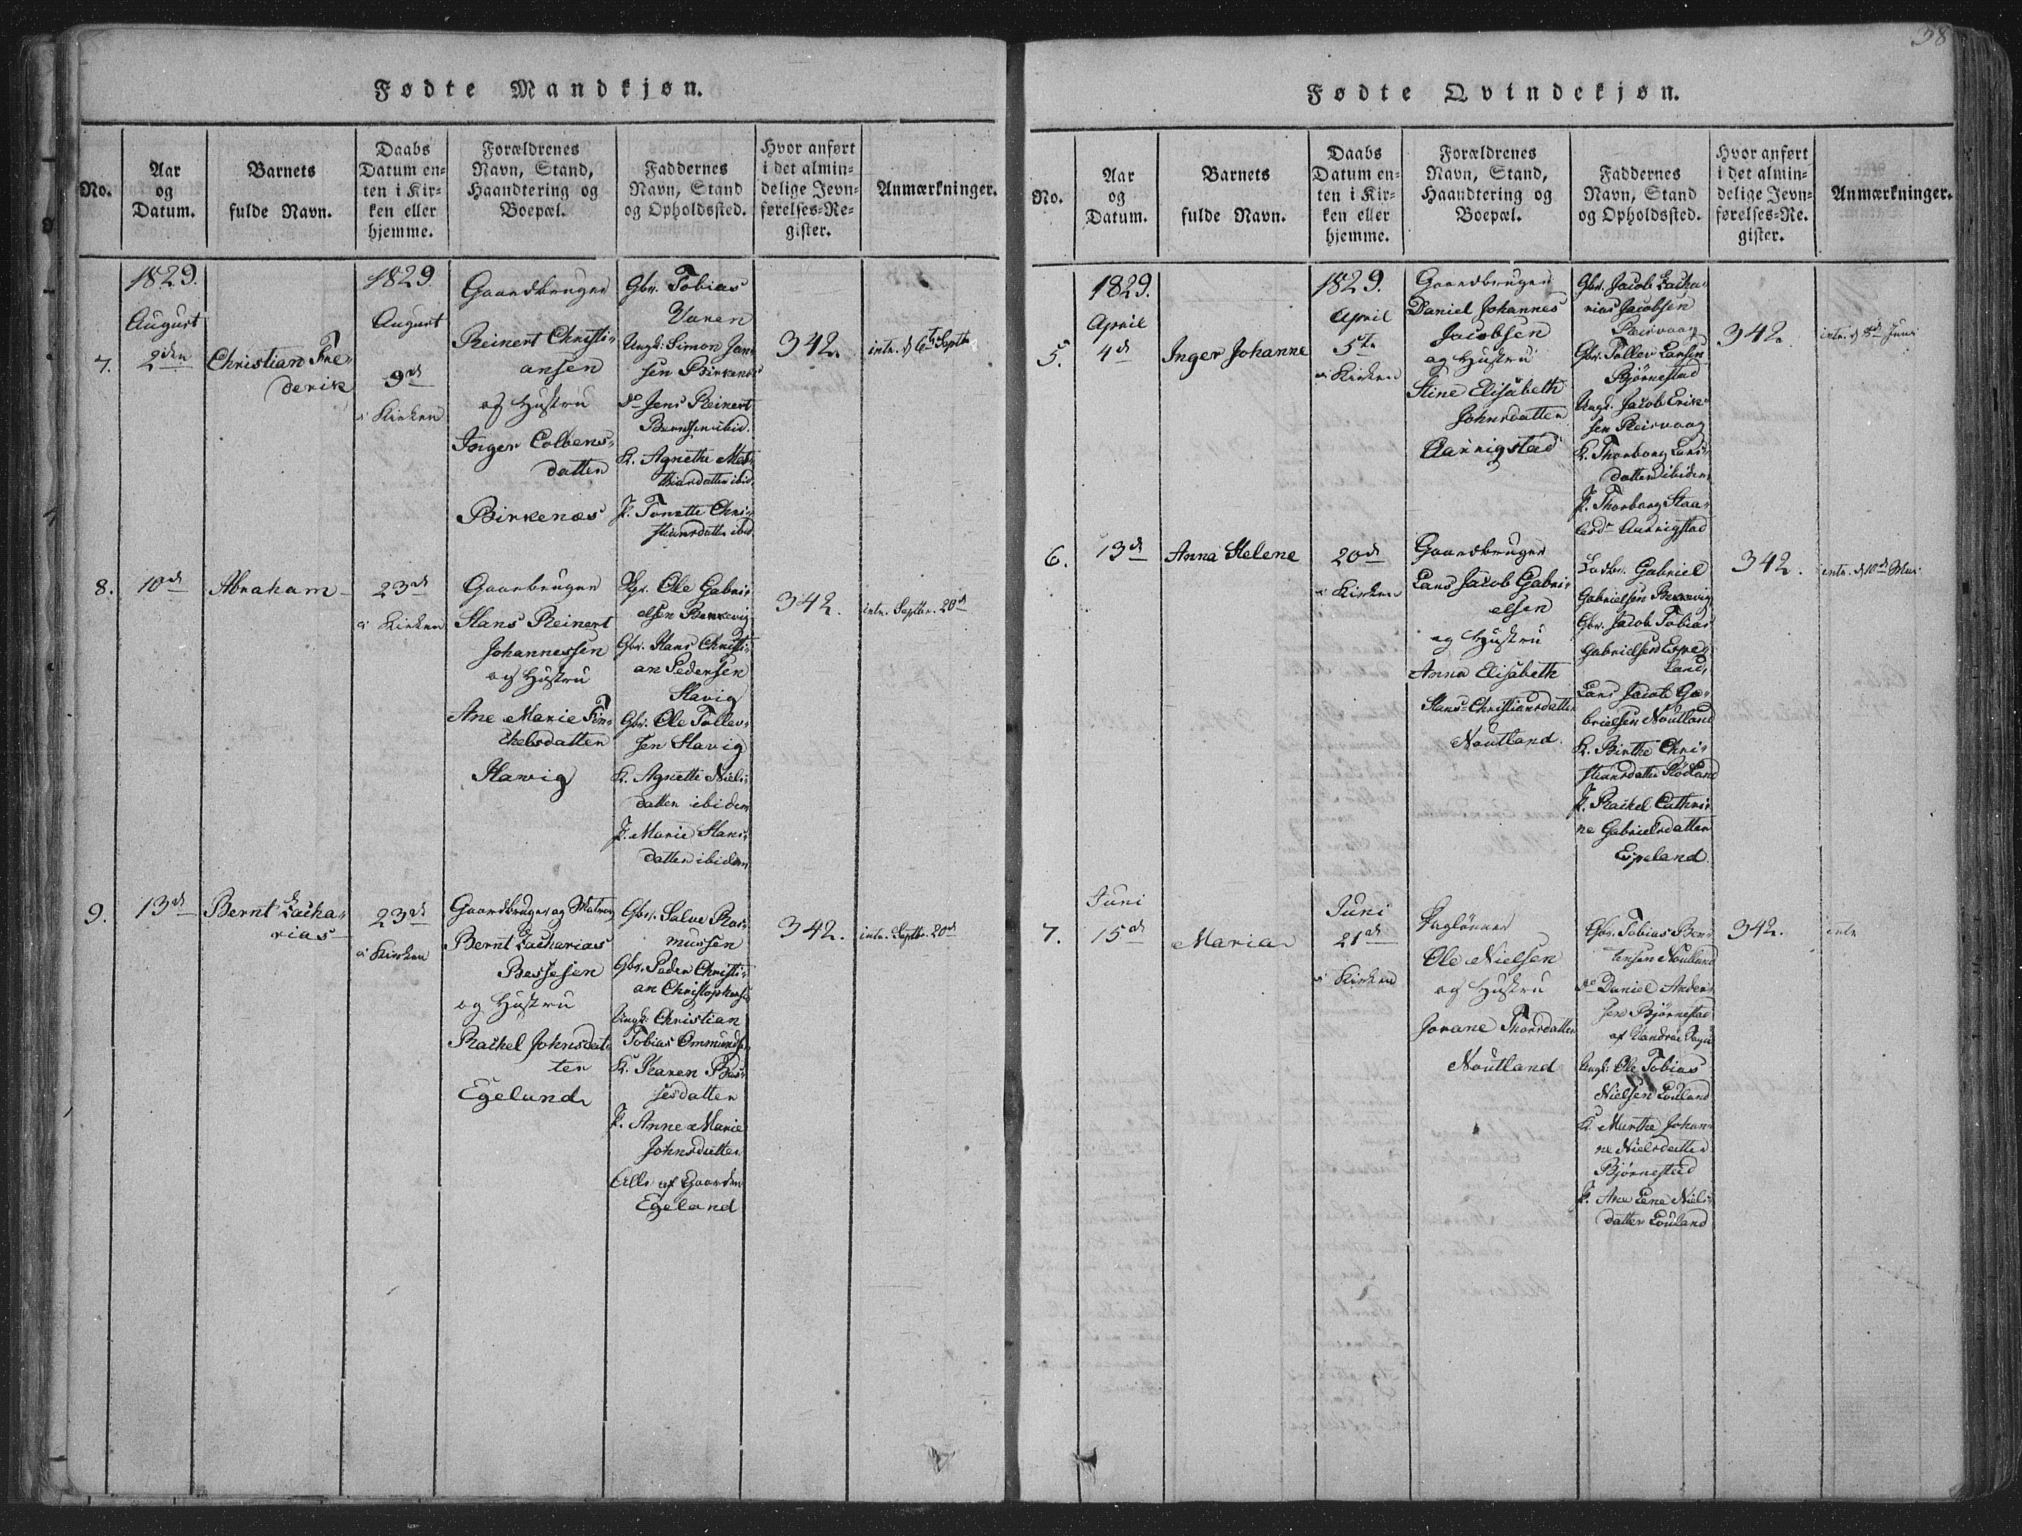 38
Fødte Mandkjøn.
No.
Aar
og
Datum.
Barnets
fulde Navn.
Daabs
Datum en-
ten i Kir-
ken eller
hjemme.
Forældrenes
Navn, Stand,
Haandtering og
Boepæl.
Faddernes
Navn, Stand
og Opholdssted.
Hvor anført
i det almin-
delige Jevn-
førelses-Re-
gister.
Anmærkninger.
7.
1829.
August
2den
Christian Fre-
derik
1829
August
9de
i Kirken
Gaardbruger
Reinert Christi-
ansen
og Hustru
Inger Colbens-
datter
Birkenæs
Gbr. Tobias
Ungk: Simon Jen-
sen Birkenæs
do Jens Reinert
Berntsen ibid.
K. Agnethe Mat-
thiasdatter ibid.
P. Tonette Chri-
stiansdatter ibid.
342.
intr. d 6te Septb
8.
10de
Abraham
23de
i Kirken
Gaarbruger
Hans Reinert
Johannessen
og Hustru
Ane Marie Tor-
kelsdatter
Havig
Ole Gabri-
elsen
Gbr. Hans Christi-
an Pedersen
Havig
Gbr. Ole Tollev-
sen Havig
K. Agnette Niels-
datter ibidem
P. Marie Hans-
datter ibidem
342.
intr. Septbr. 20de
9.
13de
Bernt Zacha-
rias
23de
i Kirken
Gaardbruger og Matros
Bernt Zacharias
Bessesen
og Hustru
Rachel Johnsdat-
ter
Egeland
Gbr. Salve Ras-
mussen
Gbr. Peder Christi-
an Christophers:
Ungk: Christian
Tobias Ommunds:
K. Karen Bes-
sesdatter
P. Anne Marie
Johnsdatter
Alle af Gaarden
Egeland
342.
intr. Septbr. 20de
Fødte Qvindekjøn.
No.
Aar
og
Datum.
Barnets
fulde Navn.
Daabs
Datum en-
ten i Kir-
ken eller
hjemme.
Forældrenes
Navn, Stand,
Haandtering og
Boepæl.
Faddernes
Navn, Stand
og Opholdssted.
Hvor anført
i det almin-
delige Jevn-
førelses-Re-
gister.
Anmærkninger.
5.
1829.
April
4de
Inger Johanne
1829.
April
5te
i Kirken
Gaardbruger
Daniel Johannes
Jacobsen
og Hustru
Stine Elisabeth
Johnsdatter
Aarrigstad
Gbr. Jacob Zacha-
rias Jacobsen
Reisvaag
Gbr. Tollev Larsen
Bjørnestad
Ungk. Jacob Erik-
sen Reisvaag
K. Thorborg Lars-
datter ibidem
P. Thorborg Haa-
Aarrigstad
342.
intr. d Juni
6.
13de
Anna Helene
20de
i Kirken
Gaardbruger
Lars Jacob Gabri-
elsen
og Hustru
Anna Elisabeth
Hans-Christiansdatter
Noutland.
Gabriel
Gabrielsen
Gbr. Jacob Tobias
Gabrielsen Espe-
land
Lars Jacob Ga-
brielsen Noutland
K. Birthe Chri-
stiansdatter
P. Rachel Cathri-
ne Gabrielsdatter
Espeland.
342.
intr. d 10de Mai
7.
Juni
15de
Maria
Juni
21de
i Kirken
Daglønner
Ole Nielsen
og Hustru
Jorane Thorsdatter
Noutland
Gbr. Tobias Ber-
tensen Noutland
do Daniel Ander-
sen Bjørnestad
af
Ungk: Ole Tobias
Nielsen Louland
K. Marthe Johan-
ne Nielsdatter
Bjørnestad
P. Ane Lene Niels-
datter Louland
342.
intr